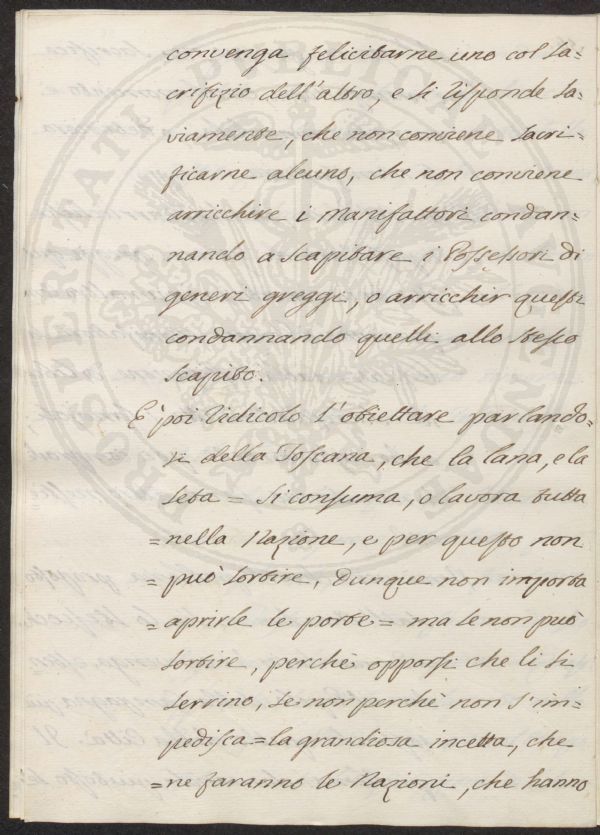 convenga felicitarne uno col Sa-
crifizio dell'altro, e si risponde Sa-
viamente, che non conviene Sacri-
ficarne alcuno, che non conviene
arricchire i Manifattori condan-
nando a scapitare i Possessori di
generi greggi, o arricchir questi
condannando quelli allo stesso
scapito.
E' poi ridicolo l'obiettare parlando-
si della Toscana, che la lana, e la
Seta = si consuma, o lavora tutta
= nella Nazione, e per questo non
= può sortire, dunque non importa
= aprirle le porte = ma se non può
sortire, perchè opporsi che li si
servino, se non perchè non s'im-
pedisca = la grandiosa incetta, che
= ne faranno le Nazioni, che hanno
PROSPERITATI PUBLICAE AUGENDAE